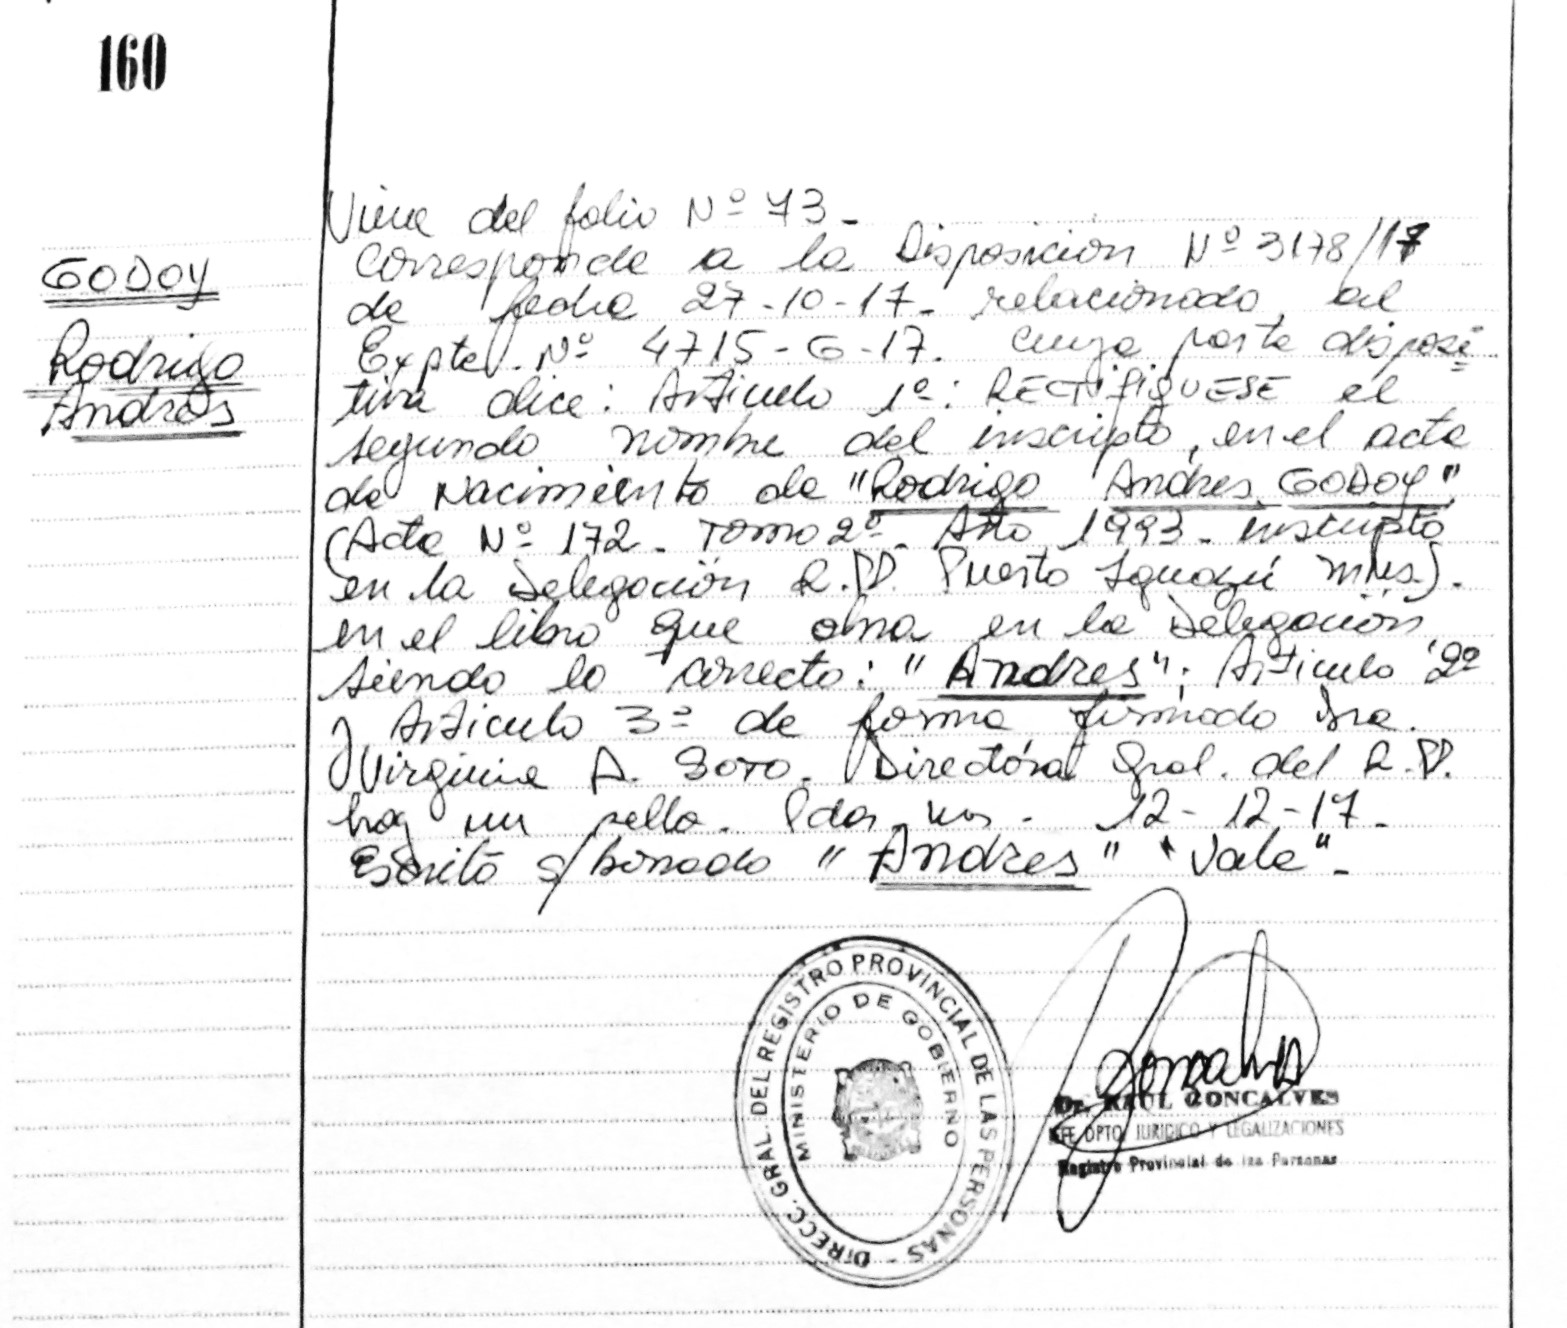 160
GODOY
Rodrigo
Andres
Viene del folio Nº 73.
Corresponde a la Disposición Nº 3178/17
de fecha 27-10-17. relacionado al
Expte. Nº 4715-G-17. cuya parte disposi=
tiva dice: Articulo 1º: RECTIFIQUESE el
segundo nombre del inscripto, en el acta
de Nacimiento de "Rodrigo Andres GODOY"
(Acta Nº 172. Tomo 2º. Año 1993. inscripto
en la Delegación R.PP. Puerto Iguazú Mnes.).
en el libro que obra en la Delegación
siendo lo correcto: "Andres"; Articulo 2º
y Articulo 3º de forma firmado Dra.
Virginia A. Soto. Directora Gral. del R.PP.
hay un sello. Pdas. Mns. 12-12-17.
Escrito s/borrado "Andres" "Vale".
DIRECC. GRAL. DEL REGISTRO PROVINCIAL DE LAS PERSONAS -
MINISTERIO DE GOBIERNO
Dr. RAUL GONCALVES
JEFE DPTO. JURIDICO Y LEGALIZACIONES
Registro Provincial de las Personas